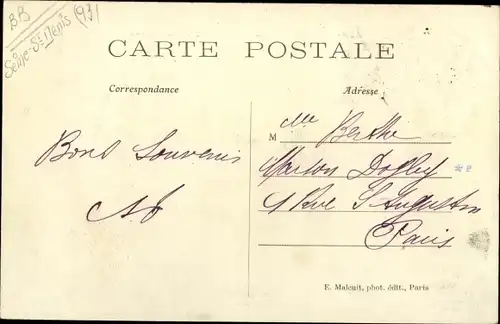 BB
Seine-St Denis (93)
CARTE POSTALE
Correspondance
Adresse
Mlle Berthe
Bons Souvenirs
Maison
Rue St Augustin
Paris
E. Malcuit, phot. édit., Paris